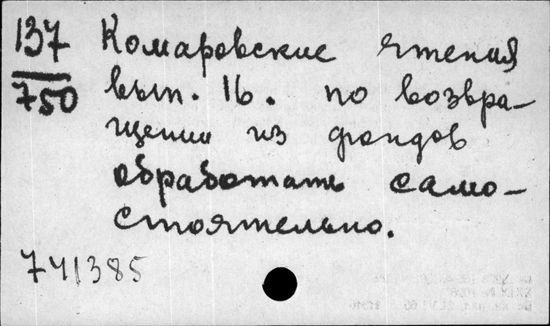 137 Комаровские чтения
750 вып. 16. по возвра-
щении из фондов
обработать само-
стоятельно.
741385